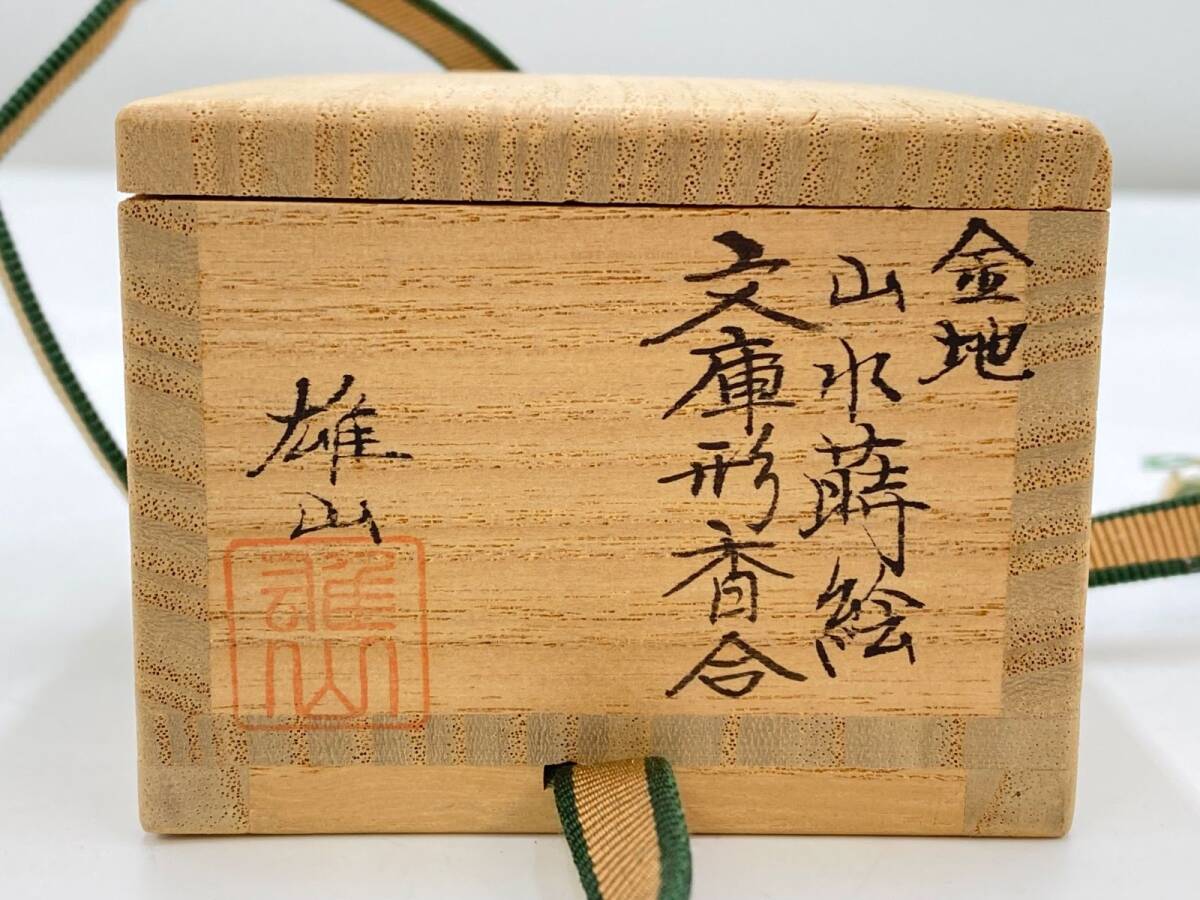 金地
山水蒔絵
文庫形香合
雄山
雄山